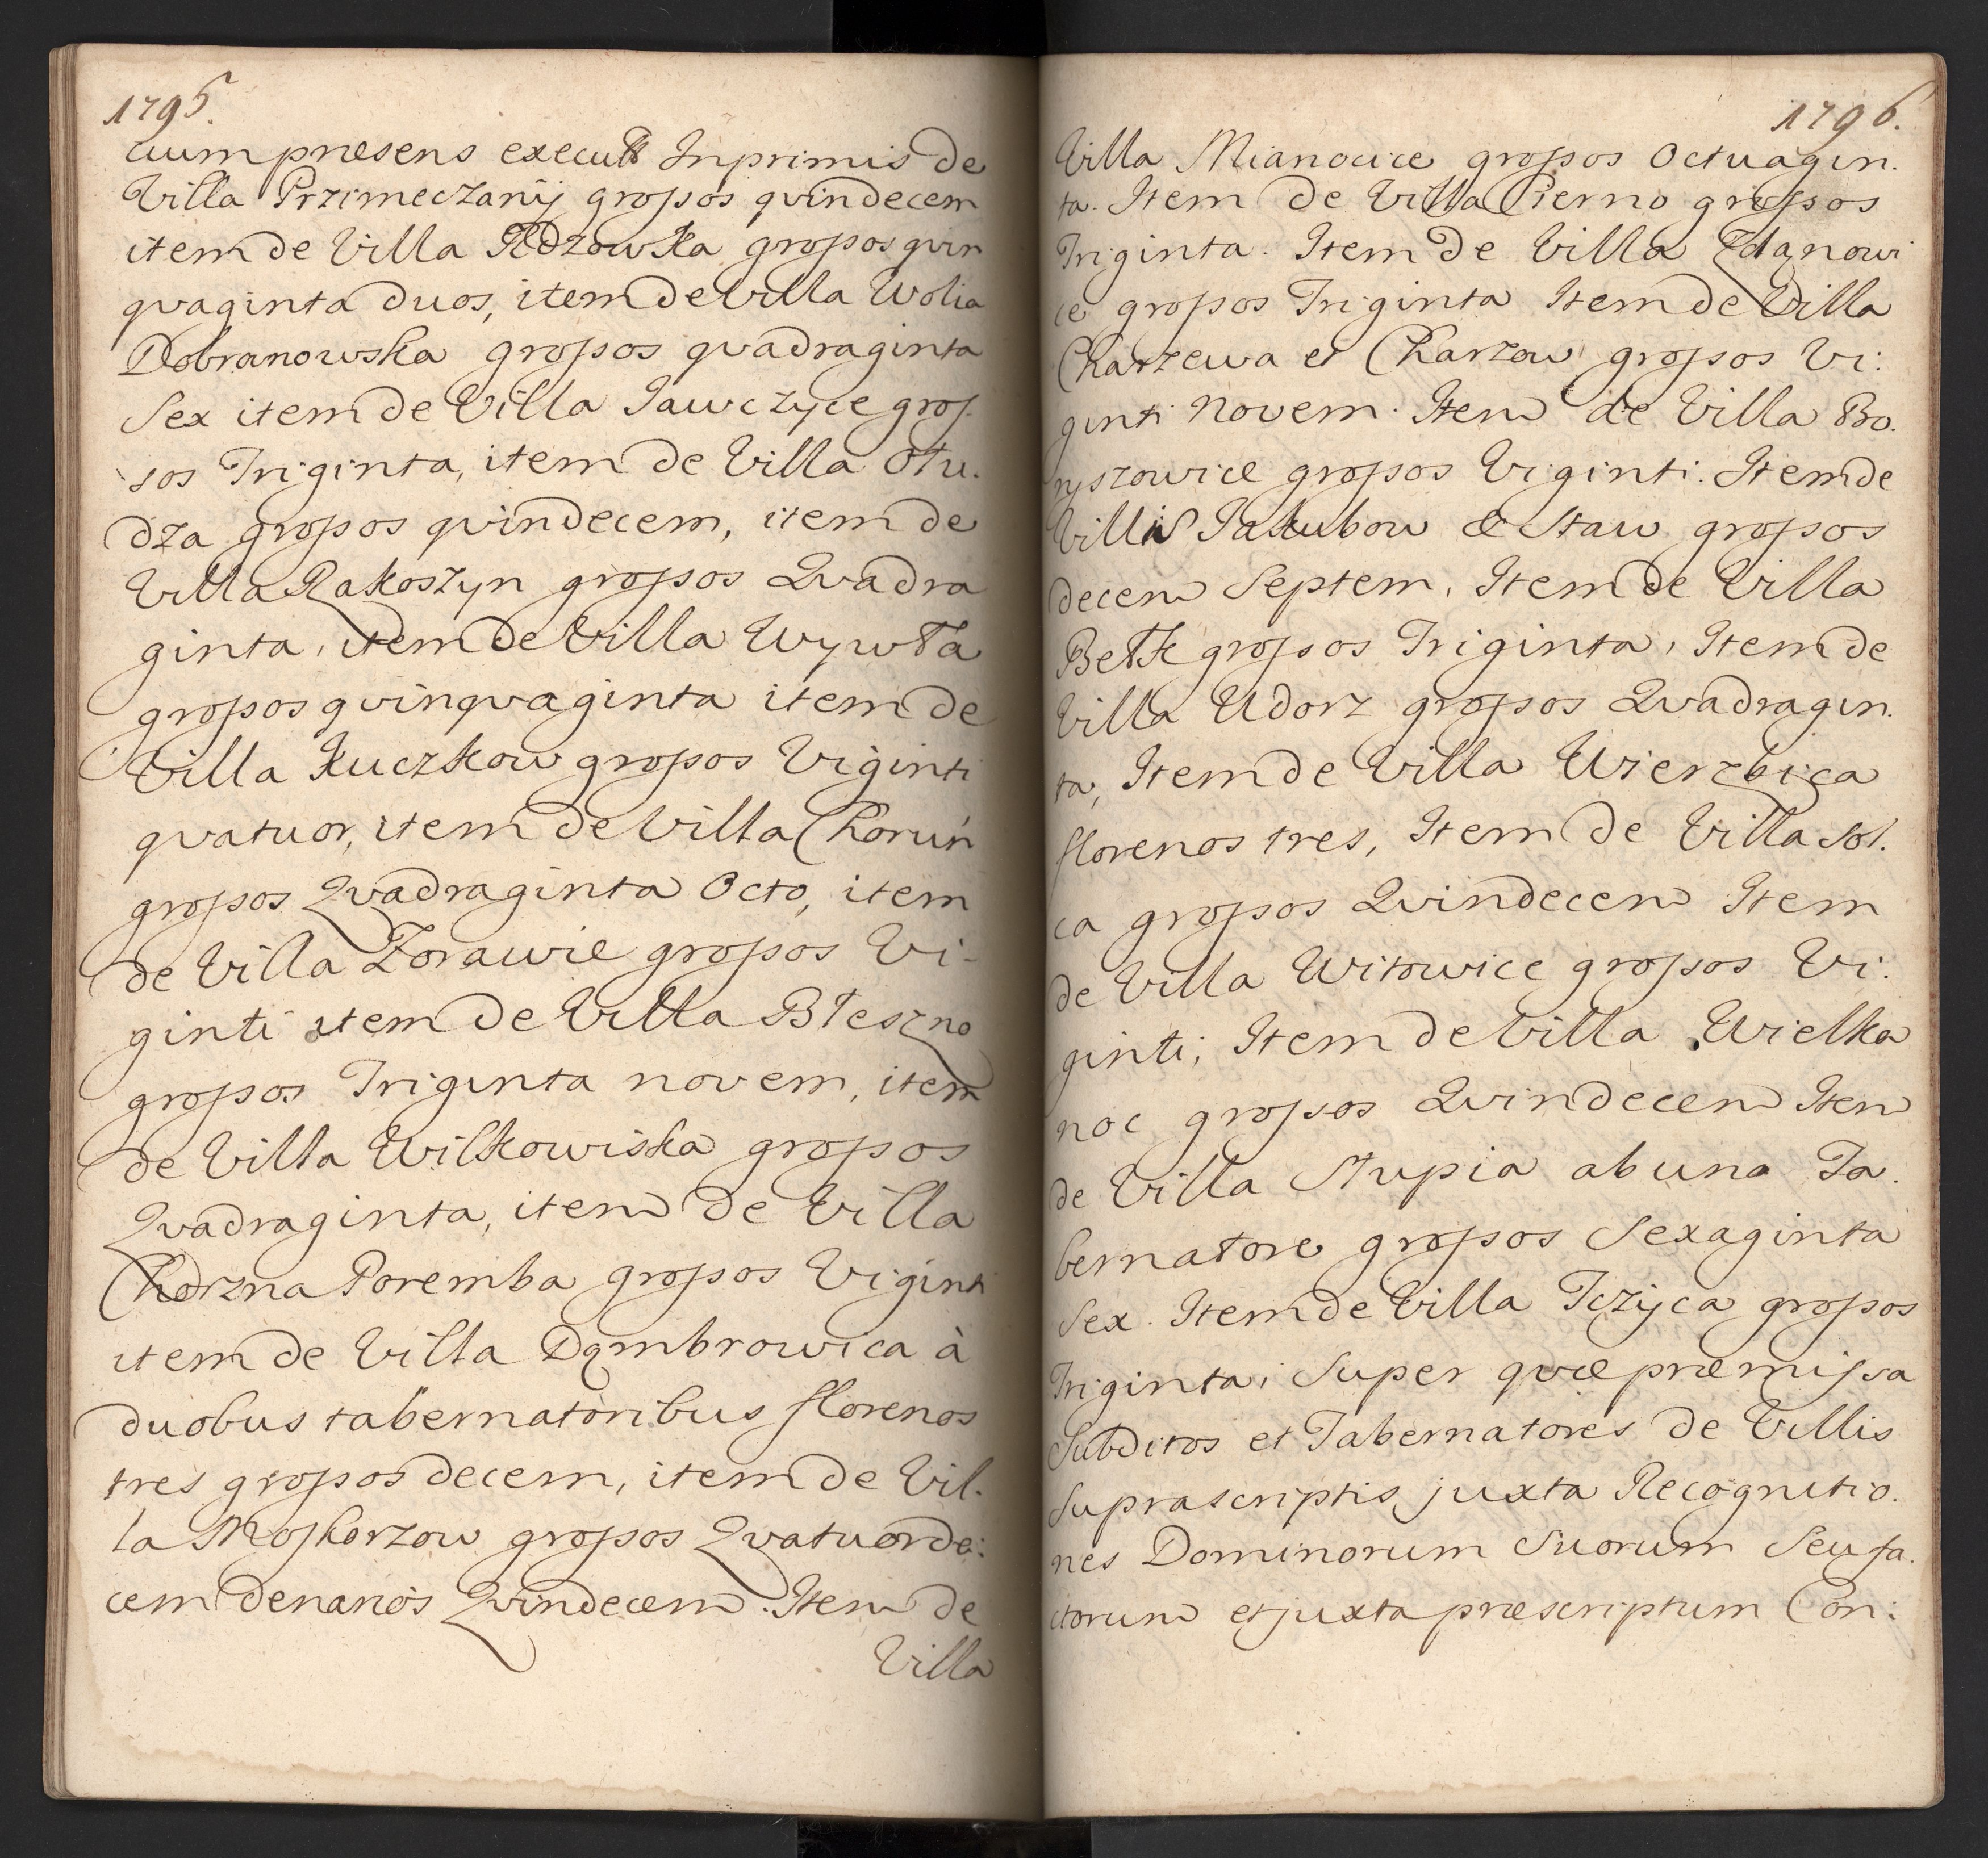 1795.
cuum præsens execut Inprimis de
Villa Przimeczanÿ grossos qvindecem
item de Villa Rdzowka grossos qvin
qvaginta duos, item de Villa Wolia
Dobranowska grossos qvadraginta
Sex item de Villa Jawczyce gros
sos Triginta, item de Villa Otu.
dza grossos qvindecem, item de
Villa Rakoszyn grossos Qvadra
ginta, item de Villa Wywła
grossos qvinqvaginta item de
Villa Kuczkow grossos Viginti
qvatuor, item de Villa Choruń
grossos Qvadraginta Octo, item
de Villa Zorawie grossos Vi-
ginti item de Villa Błeszno
grossos Triginta novem, item
de Villa Wilkowiska grossos
Qvadraginta, item de Villa
Chorzna Poremba grossos Viginti
item de Villa Dąmbrowica à
duobus tabernatoribus florenos
tres grossos decem, item de Vil.
la Moskorzow grossos Qvatuorde:
cem denarios Qvindecem. Item de
Villa
1796.
Villa Mianocice grossos Octuagin.
ta. Item de Villa Cierno grossos
Triginta. Item de Villa Zdanowi
ce grossos Triginta Item de Villa
Charzewa et Charzow grossos Vi:
ginti Novem. Item de Villa Bo.
ryszowice grossos Viginti. Item de
Villis Jakubow & Staw grossos
decem Septem, Item de Villa
Bełk grossos Triginta, Item de
Villa Udorz grossos Qvadragin.
ta, Item de Villa Wierzbica
florenos tres, Item de Villa Sol.
ca grossos Qvindecem Item
de Villa Witowice grossos Vi.
ginti; Item de Villa Wielka
noc grossos Qvindecem Item
de Villa Słupia ab uno Ta.
bernatore grossos Sexaginta
Sex. Item de Villa Jczÿca grossos
Triginta; Super qvæ præmissa
Subditos et Tabernatores de Villis
suprascriptis juxta Recognitio.
nes Dominorum Suorum Seu fa.
ctorum et juxta præscriptum Con: